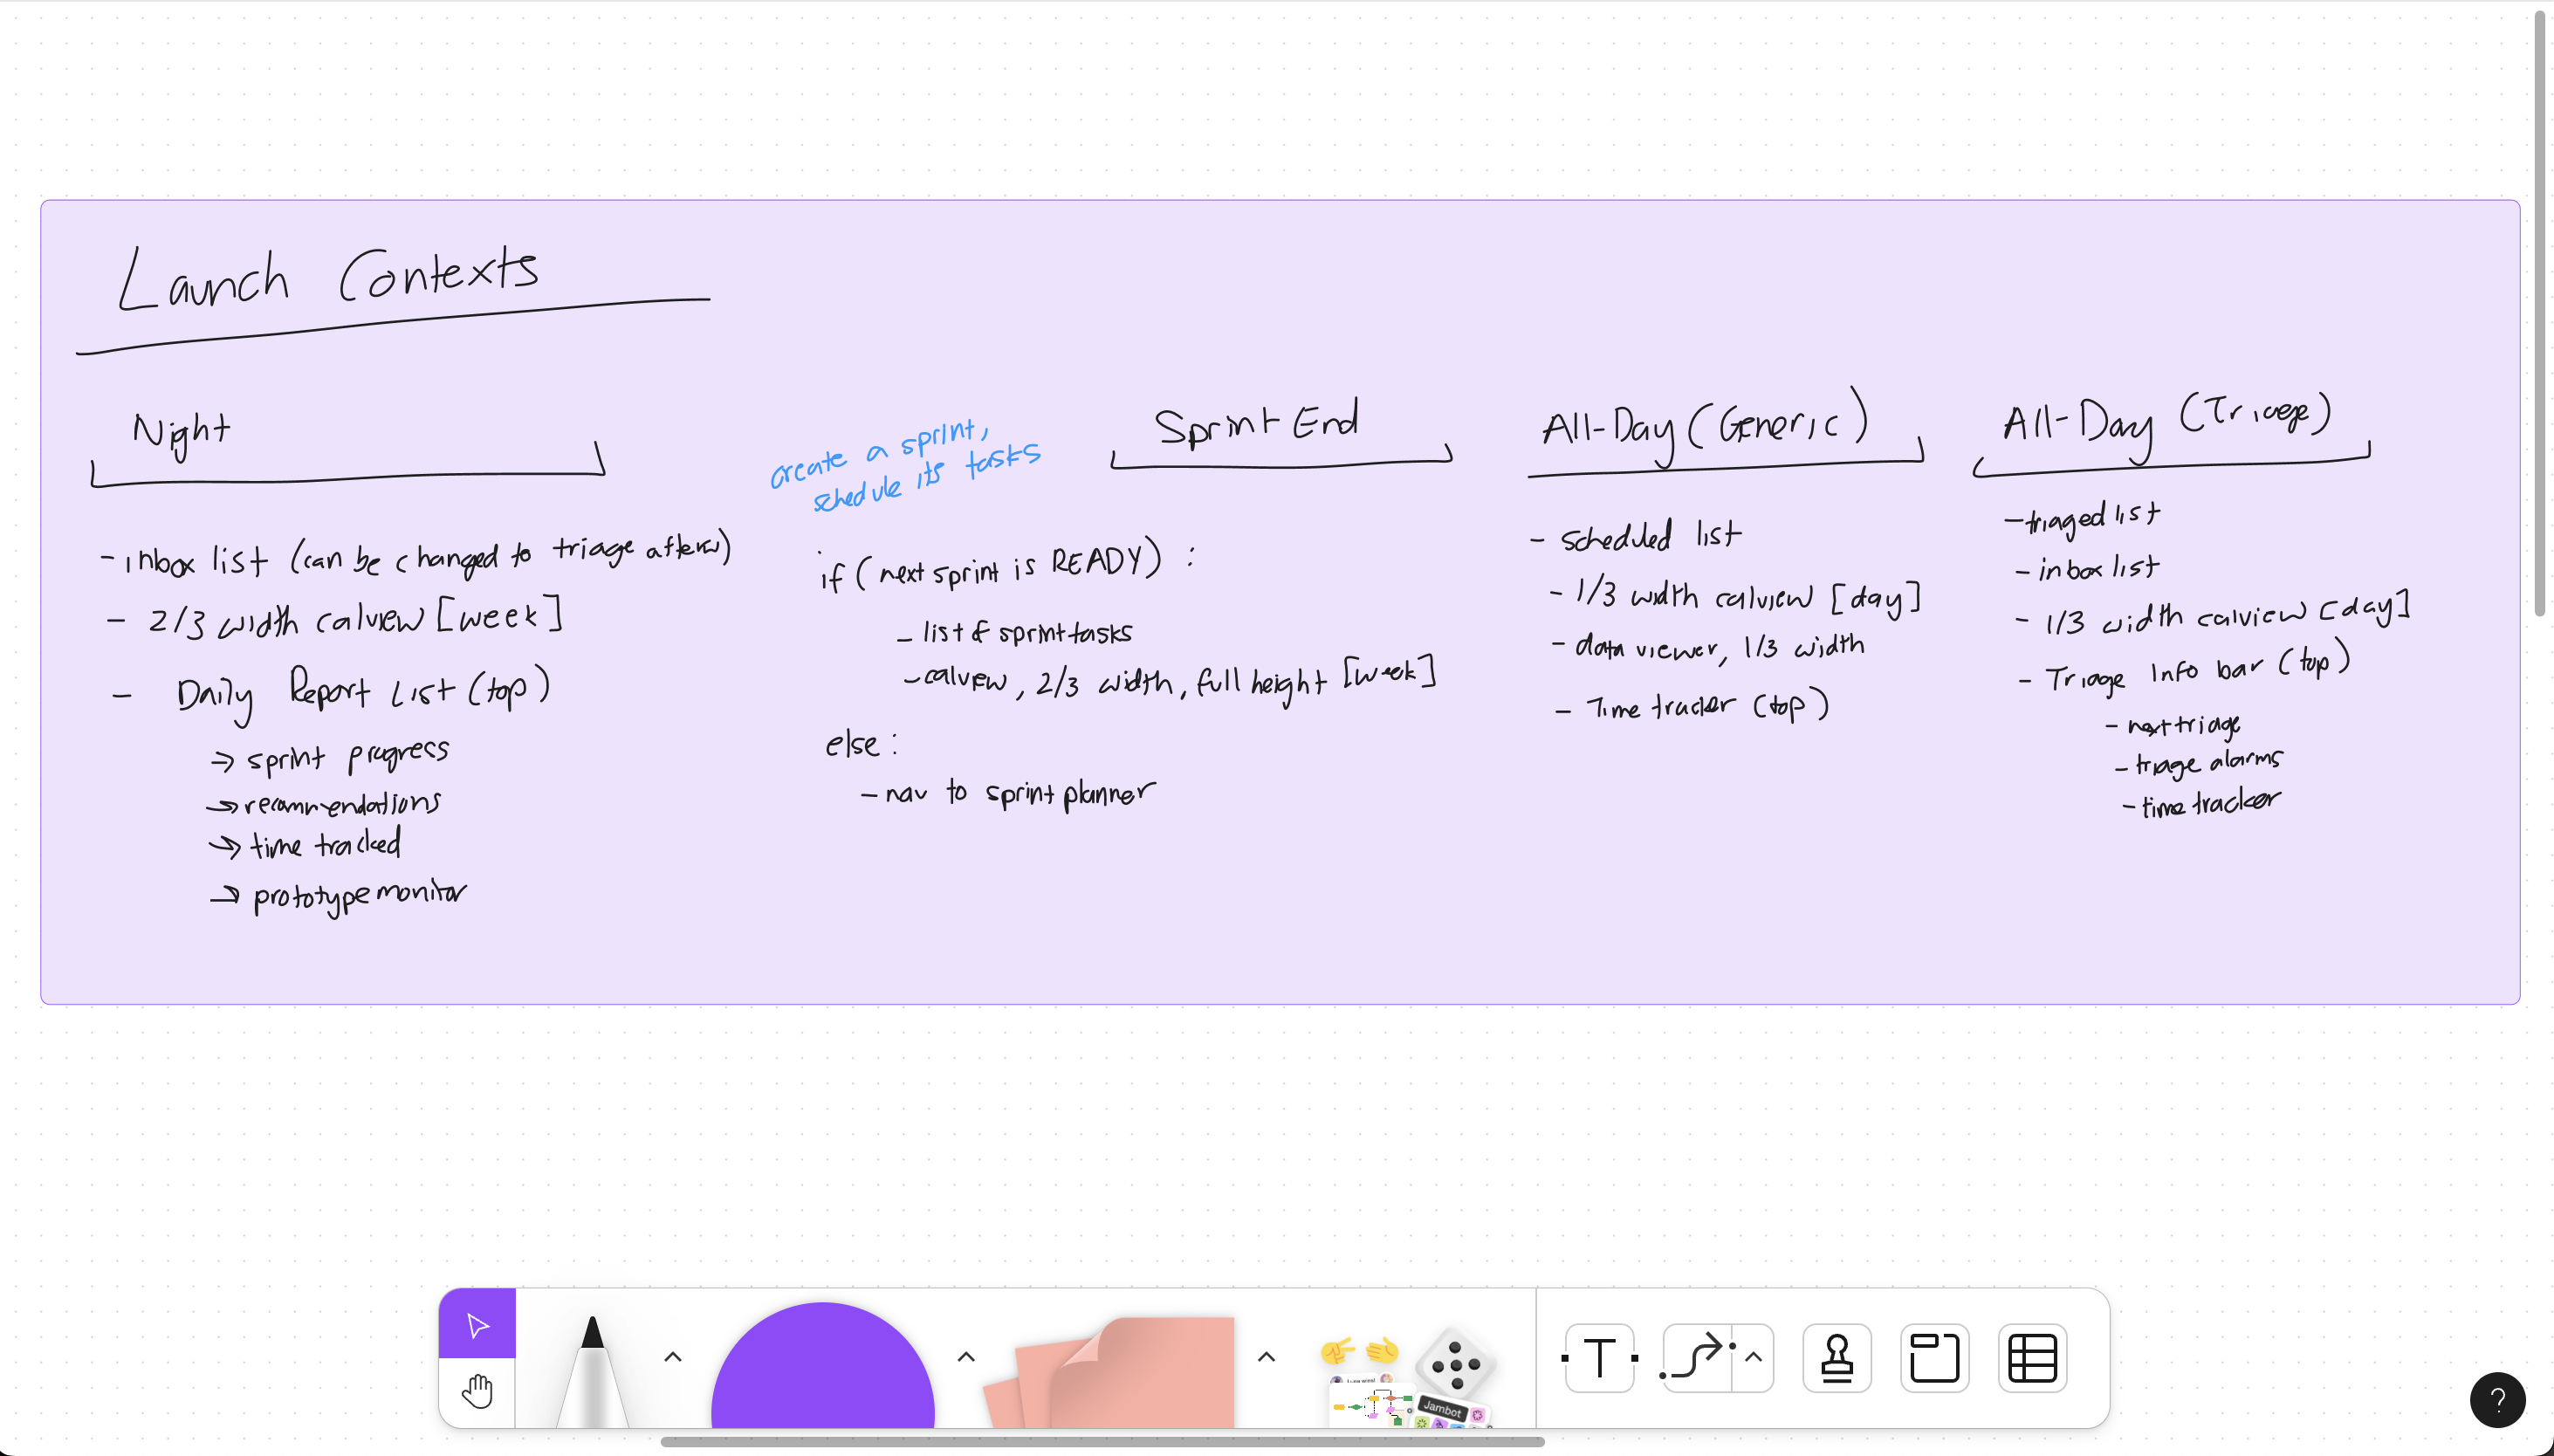 Launch Contexts
Night
- inbox list (can be changed to triage afterw)
- 2/3 width calview [week]
- Daily Report List (top)
→ sprint progress
→ recommendations
→ time tracked
→ prototype monitor
create a sprint,
schedule its tasks
Sprint End
if (next sprint is READY) :
- list of sprint tasks
- calview, 2/3 width, full height [week]
else :
- nav to sprint planner
All-Day (Generic)
- scheduled list
- 1/3 width calview [day]
- data viewer, 1/3 width
- Time tracker (top)
All-Day (Triage)
- triaged list
- inbox list
- 1/3 width calview [day]
- Triage Info bar (top)
- next triage
- triage alarms
- time tracker
T
Jambot
?